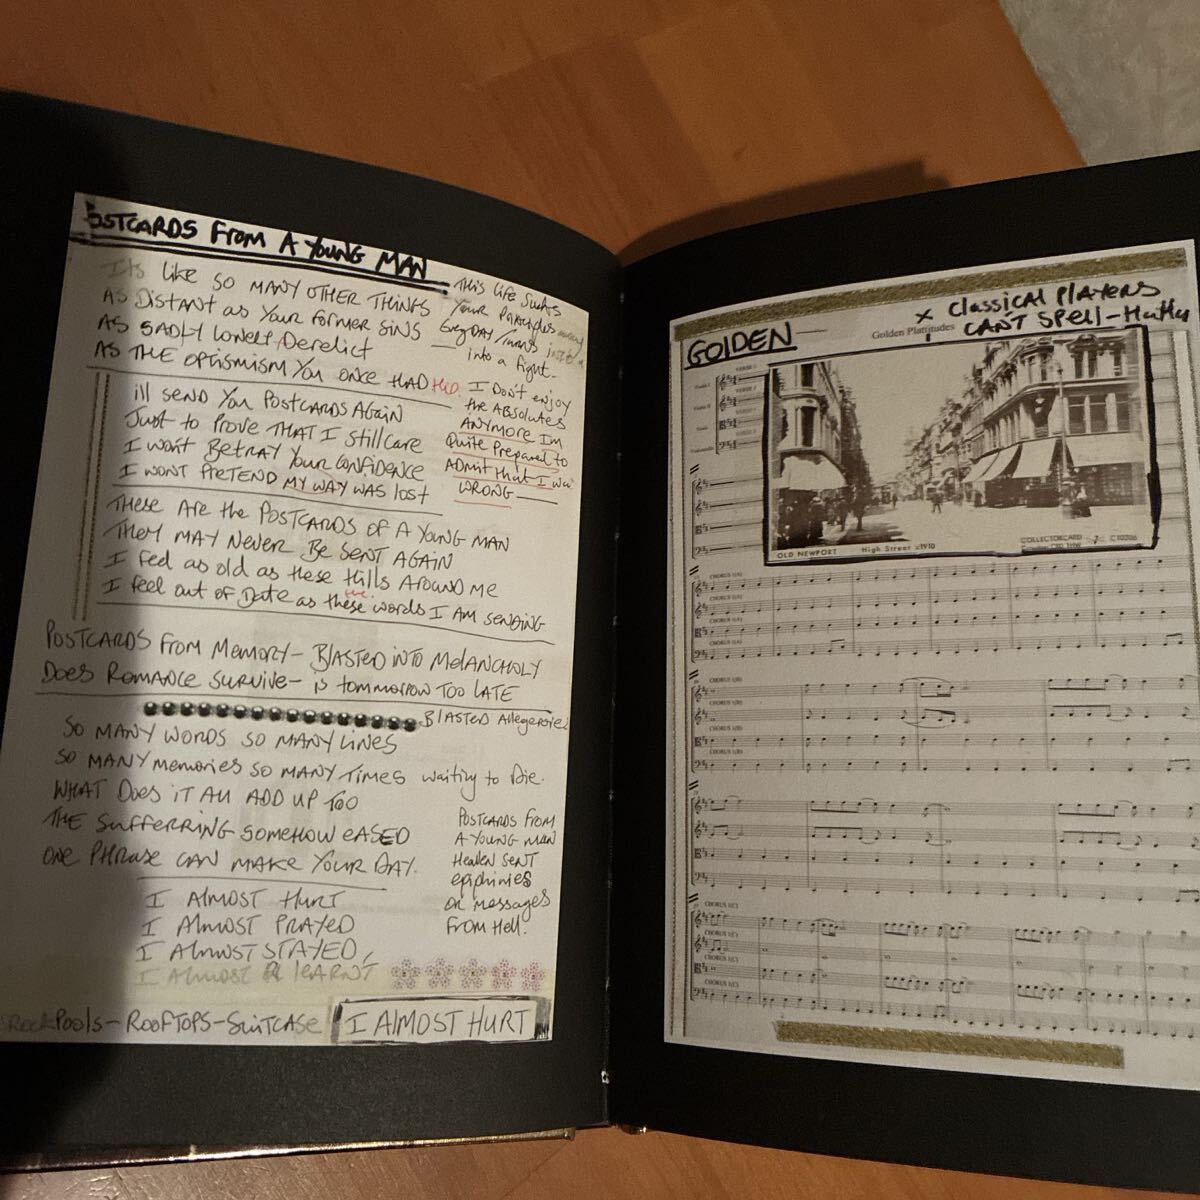 POSTCARDS FROM A YOUNG MAN
Its like so many other things
As Distant as Your former sins
As sadly lonely, Derelict
As the optismism You once had HAD
This life sucks
Your Principles
Everyday turns
into a fight
I Don't enjoy
the Absolutes
Anymore Im
Quite Prepared to
Admit that I was
WRONG
ill send You Postcards Again
Just to Prove that I still care
I wont Betray Your confidence
I wont Pretend my way was lost
These Are the Postcards of A Young Man
They may never be sent again
I feel as old as these Hills Around me
I feel out of Date as these the words I am sending
Postcards from memory - Blasted into melancholy
Does Romance survive - is tommorrow too late
Blasted Allegories
So many words so many lines
So many memories so many times waiting to Die.
What Does it all add up too
The sufferring somehow eased
One Phrase can make your day.
Postcards from
A Young man
Heaven sent
epiphinies
or messages
from Hell.
I Almost Hurt
I Almost Prayed
I Almost Stayed,
I Almost learnt
RockPools - Rooftops - Suitcase
I Almost Hurt
GOLDEN
Golden Plattitudes
x Classical Players
Can't Spell -
Violin I
Violin II
Viola
Violoncello
VERSE 1
OLD NEWPORT High Street c1910
COLLECTORCARD
C10206
CHORUS 1(A)
CHORUS 1(A)
CHORUS 1(A)
CHORUS 1(A)
CHORUS 1(B)
CHORUS 1(B)
CHORUS 1(B)
CHORUS 1(B)
CHORUS 1(C)
CHORUS 1(C)
CHORUS 1(C)
CHORUS 1(C)